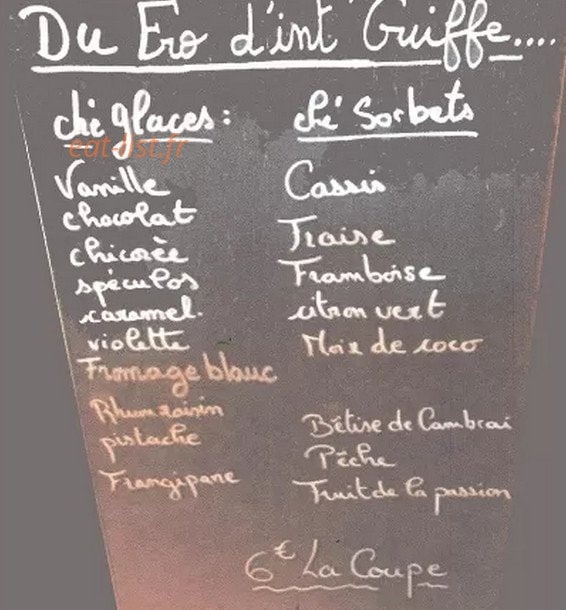 Du Fro d'int' Guiffe....
ché glaces:
Vanille
chocolat
chicorée
spéculos
caramel.
violette
Fromage blanc
Rhum raisin
pistache
Frangipane
ché Sorbets
Cassis
Fraise
Framboise
citron vert
Noix de coco
Bêtise de Cambrai
Pêche
Fruit de la passion
6€ La Coupe